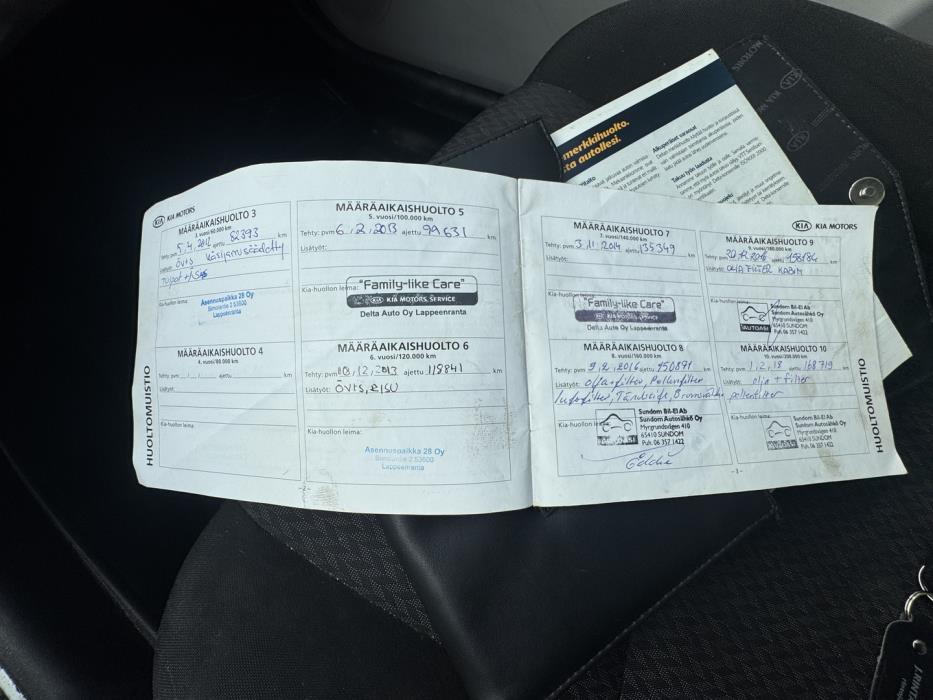 KIA MOTORS
MÄÄRÄAIKAISHUOLTO 3
3. vuosi/60.000 km
Tehty: pvm 5.4.2012 ajettu 82393 km
Lisätyöt: Övts käsijarrusäädetty
Kia-huollon leima:
Asennuspaikka 28 Oy
Simolantie 2 53600
Lappeenranta
MÄÄRÄAIKAISHUOLTO 4
4. vuosi/80.000 km
Tehty: pvm ajettu km
Lisätyöt:
Kia-huollon leima:
HUOLTOMUISTIO
MÄÄRÄAIKAISHUOLTO 5
5. vuosi/100.000 km
Tehty: pvm 6.2.2013 ajettu 99631 km
Lisätyöt:
Kia-huollon leima:
"Family-like Care"
KIA MOTORS SERVICE
Delta Auto Oy Lappeenranta
MÄÄRÄAIKAISHUOLTO 6
6. vuosi/120.000 km
Tehty: pvm 10.12.2013 ajettu 118841 km
Lisätyöt: ÖVTS, RISU
Kia-huollon leima:
Asennuspaikka 28 Oy
Simolantie 2 53600
Lappeenranta
-2-
MÄÄRÄAIKAISHUOLTO 7
7. vuosi/140.000 km
Tehty: pvm 3.11.2014 ajettu 135349 km
Lisätyöt:
Kia-huollon leima:
"Family-like Care"
KIA MOTORS SERVICE
Delta Auto Oy Lappeenranta
MÄÄRÄAIKAISHUOLTO 8
8. vuosi/160.000 km
Tehty: pvm 9.2.2016 ajettu 150891 km
Lisätyöt: olja+filter, Pollenfilter
luftfilter, Tändstift, Bromsvätska
Kia-huollon leima:
Sundom Bil-El Ab
Sundom Autosähkö Oy
Myrgrundsvägen 410
65410 SUNDOM
Puh. 06 357 1422
Eddie
KIA MOTORS
MÄÄRÄAIKAISHUOLTO 9
9. vuosi/180.000 km
Tehty: pvm ajettu 158184 km
Lisätyöt: OLJA FILTER KABIN
Kia-huollon leima:
Sundom Bil-El Ab
Sundom Autosähkö Oy
Myrgrundsvägen 410
65410 SUNDOM
Puh. 06 357 1422
AUTOASI
MÄÄRÄAIKAISHUOLTO 10
10. vuosi/200.000 km
Tehty: pvm 1.2.18 ajettu 168719 km
Lisätyöt: olja + filter
pollenfilter
Kia-huollon leima:
Sundom Bil-El Ab
Sundom Autosähkö Oy
Myrgrundsvägen 410
65410 SUNDOM
Puh. 06 357 1422
-3-
HUOLTOMUISTIO
merkkihuolto.
ta autollesi.
Alkuperäiset varaosat
Takuu työn laadusta
KIA MOTORS